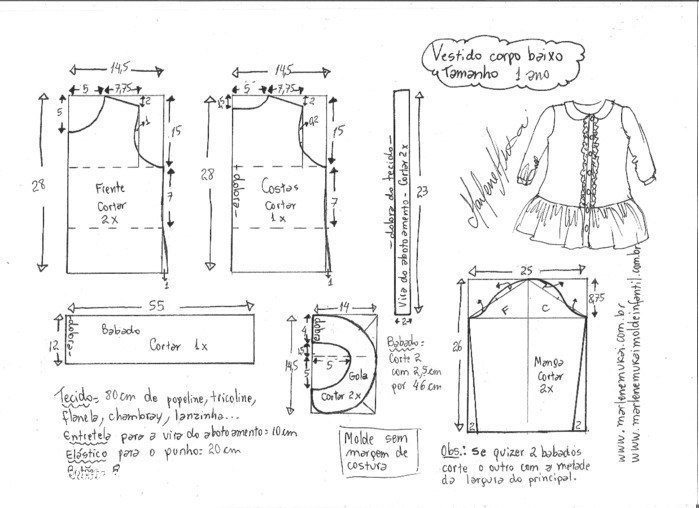 Vestido corpo baixo
Tamanho 1 ano
14,5
5
7,75
5
2
1
15
28
7
Frente
Cortar
2x
1
14,5
5
7,75
1,5
2
0,2
15
28
7
dobra
Costas
Cortar
1x
1
dobra do tecido
Vira do abotoamento - Cortar 2x
23
2
Marlene Mukai
55
12
dobra
Babado
Cortar 1x
14
14,5
dobra
4
1,5
5
5
Gola
Cortar 2x
Babado:
Corte 2
com 2,5cm
por 46cm
25
8,75
26
F
C
Manga
Cortar
2x
2
2
www.marlenemukai.com.br
www.marlenemukaimoldeinfantil.com.br
Tecido: 80cm de popeline, tricoline,
flanela, chambray, lanzinha...
Entretela para a vira do abotoamento: 10cm
Elástico para o punho: 20cm
Molde sem
margem de
costura
Obs.: Se quizer 2 babados
corte o outro com a metade
da largura do principal.